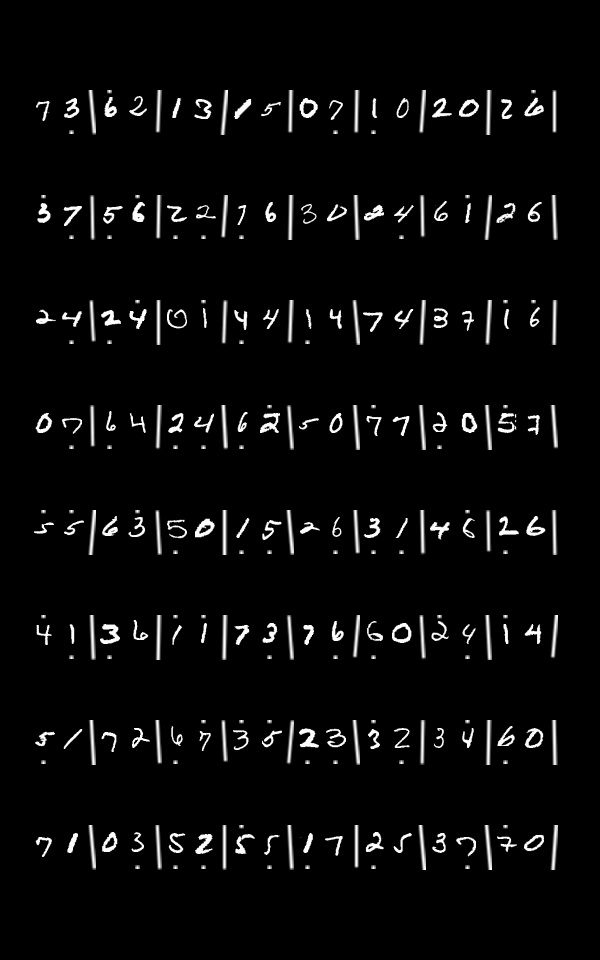 7 3̣ | 6̇ 2 | 1 3 | 1 5 | 0 7̣ | 1̣ 0 | 2 0 | 2 6̇ |
3̇ 7̣ | 5̣ 6̇ | 2̣ 2̣ | 1̣ 6 | 3 0 | 2 4̣ | 6 1̇ | 2 6 |
2 4̣ | 2̣ 4̇ | 0 1̇ | 4̣ 4 | 1̣ 4 | 7 4 | 3 7 | 1̇ 6̇ |
0 7̣ | 6̣ 4 | 2̣ 4̣ | 6̣ 2̇ | 5 0 | 7̇ 7 | 2̣ 0 | 5̇ 7 |
5̇ 5̇ | 6 3̇ | 5̣ 0 | 1 5̣ | 2 6̣ | 3̣ 1̣ | 4 6̇ | 2̣ 6 |
4̇ 1̣ | 3 6 | 1̇ 1̇ | 7 3̣ | 7 6̣ | 6̣ 0 | 2̇ 4̣ | 1̇ 4 |
5̣ 1 | 7 2 | 6̣ 7̇ | 3̇ 5̇ | 2 3̣ | 3̇ 2̣ | 3 4̇ | 6̣ 0 |
7 1 | 0 3̣ | 5̣ 2̣ | 5̇ 5̣ | 1̣ 7 | 2̣ 5 | 3 7̣ | 7̇ 0 |